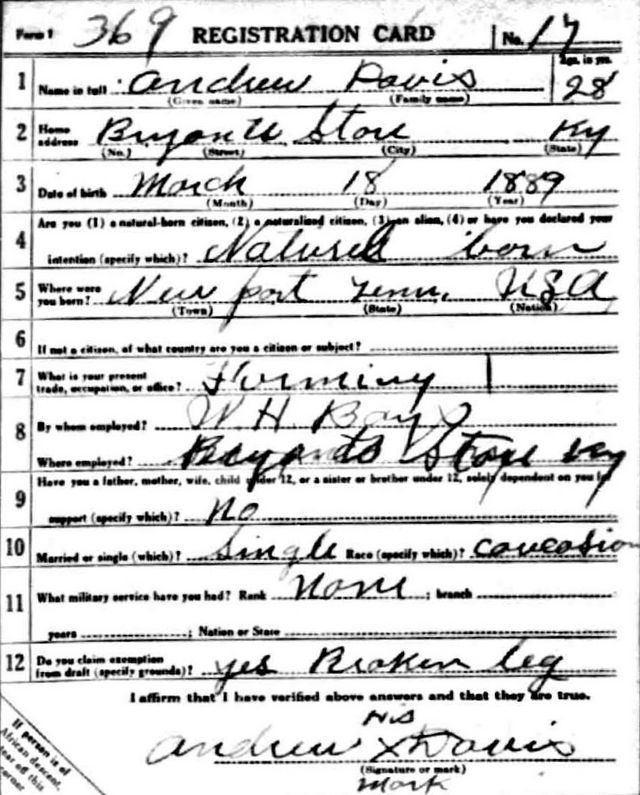 Form 1 369 REGISTRATION CARD No. 17
1 Name in full Andrew Davis Age, in yrs. 28
(Given name) (Family name)
2 Home address Bryants Store Ky
(No.) (Street) (City) (State)
3 Date of birth March 18 1889
(Month) (Day) (Year)
4 Are you (1) a natural-born citizen, (2) a naturalized citizen, (3) an alien, (4) or have you declared your
intention (specify which)? Natural born
5 Where were you born? New port Tenn. USA
(Town) (State) (Nation)
6 If not a citizen, of what country are you a citizen or subject?
7 What is your present trade, occupation, or office? Farming
8 By whom employed? W. H. Bays
Where employed? Bryants Store Ky
9 Have you a father, mother, wife, child under 12, or a sister or brother under 12, solely dependent on you for
support (specify which)? No
10 Married or single (which)? Single Race (specify which)? Caucasion
11 What military service have you had? Rank None ; branch
years ; Nation or State
12 Do you claim exemption from draft (specify grounds)? yes Broken leg
I affirm that I have verified above answers and that they are true.
His
Andrew X Davis
(Signature or mark)
Mark
If person is of
African descent,
tear off this
corner.